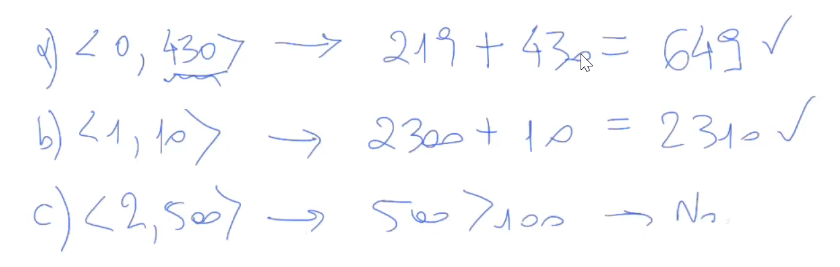 a) <0, 430> → 219 + 430 = 649 ✓
b) <1, 10> → 2300 + 10 = 2310 ✓
c) <2, 500> → 500 > 100 → No